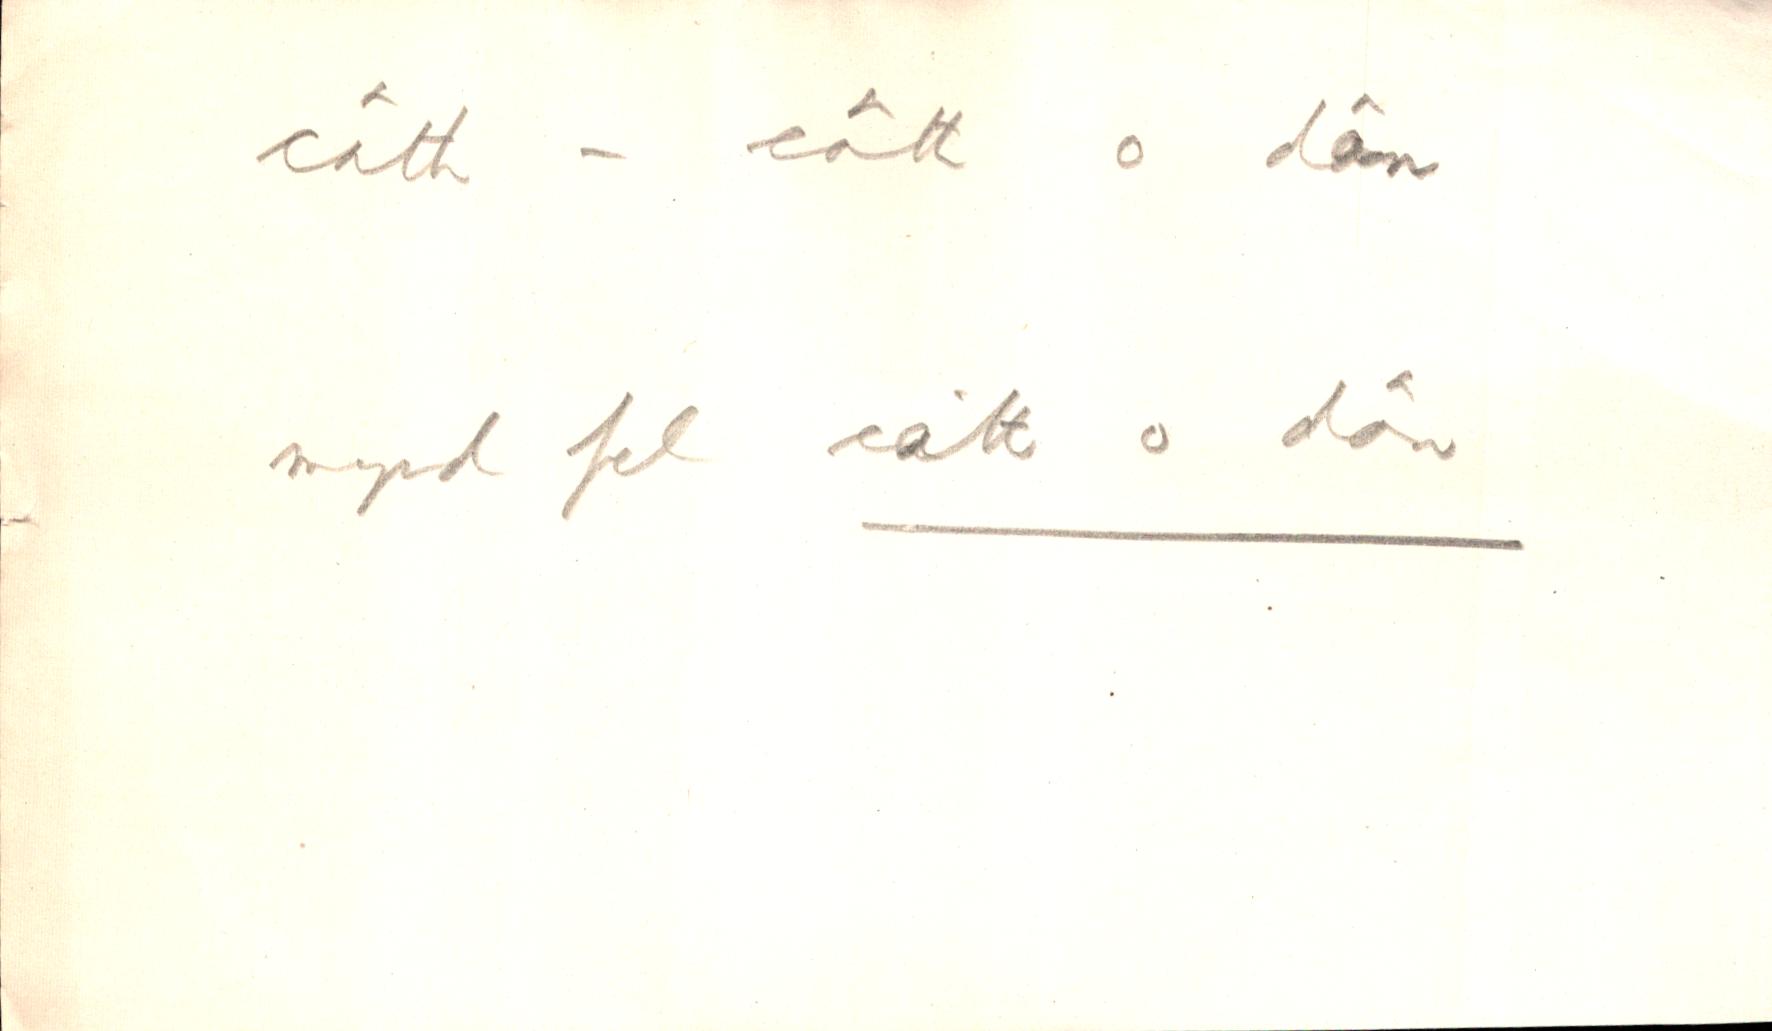 câth - câth o dân
mynd fel câth o dân